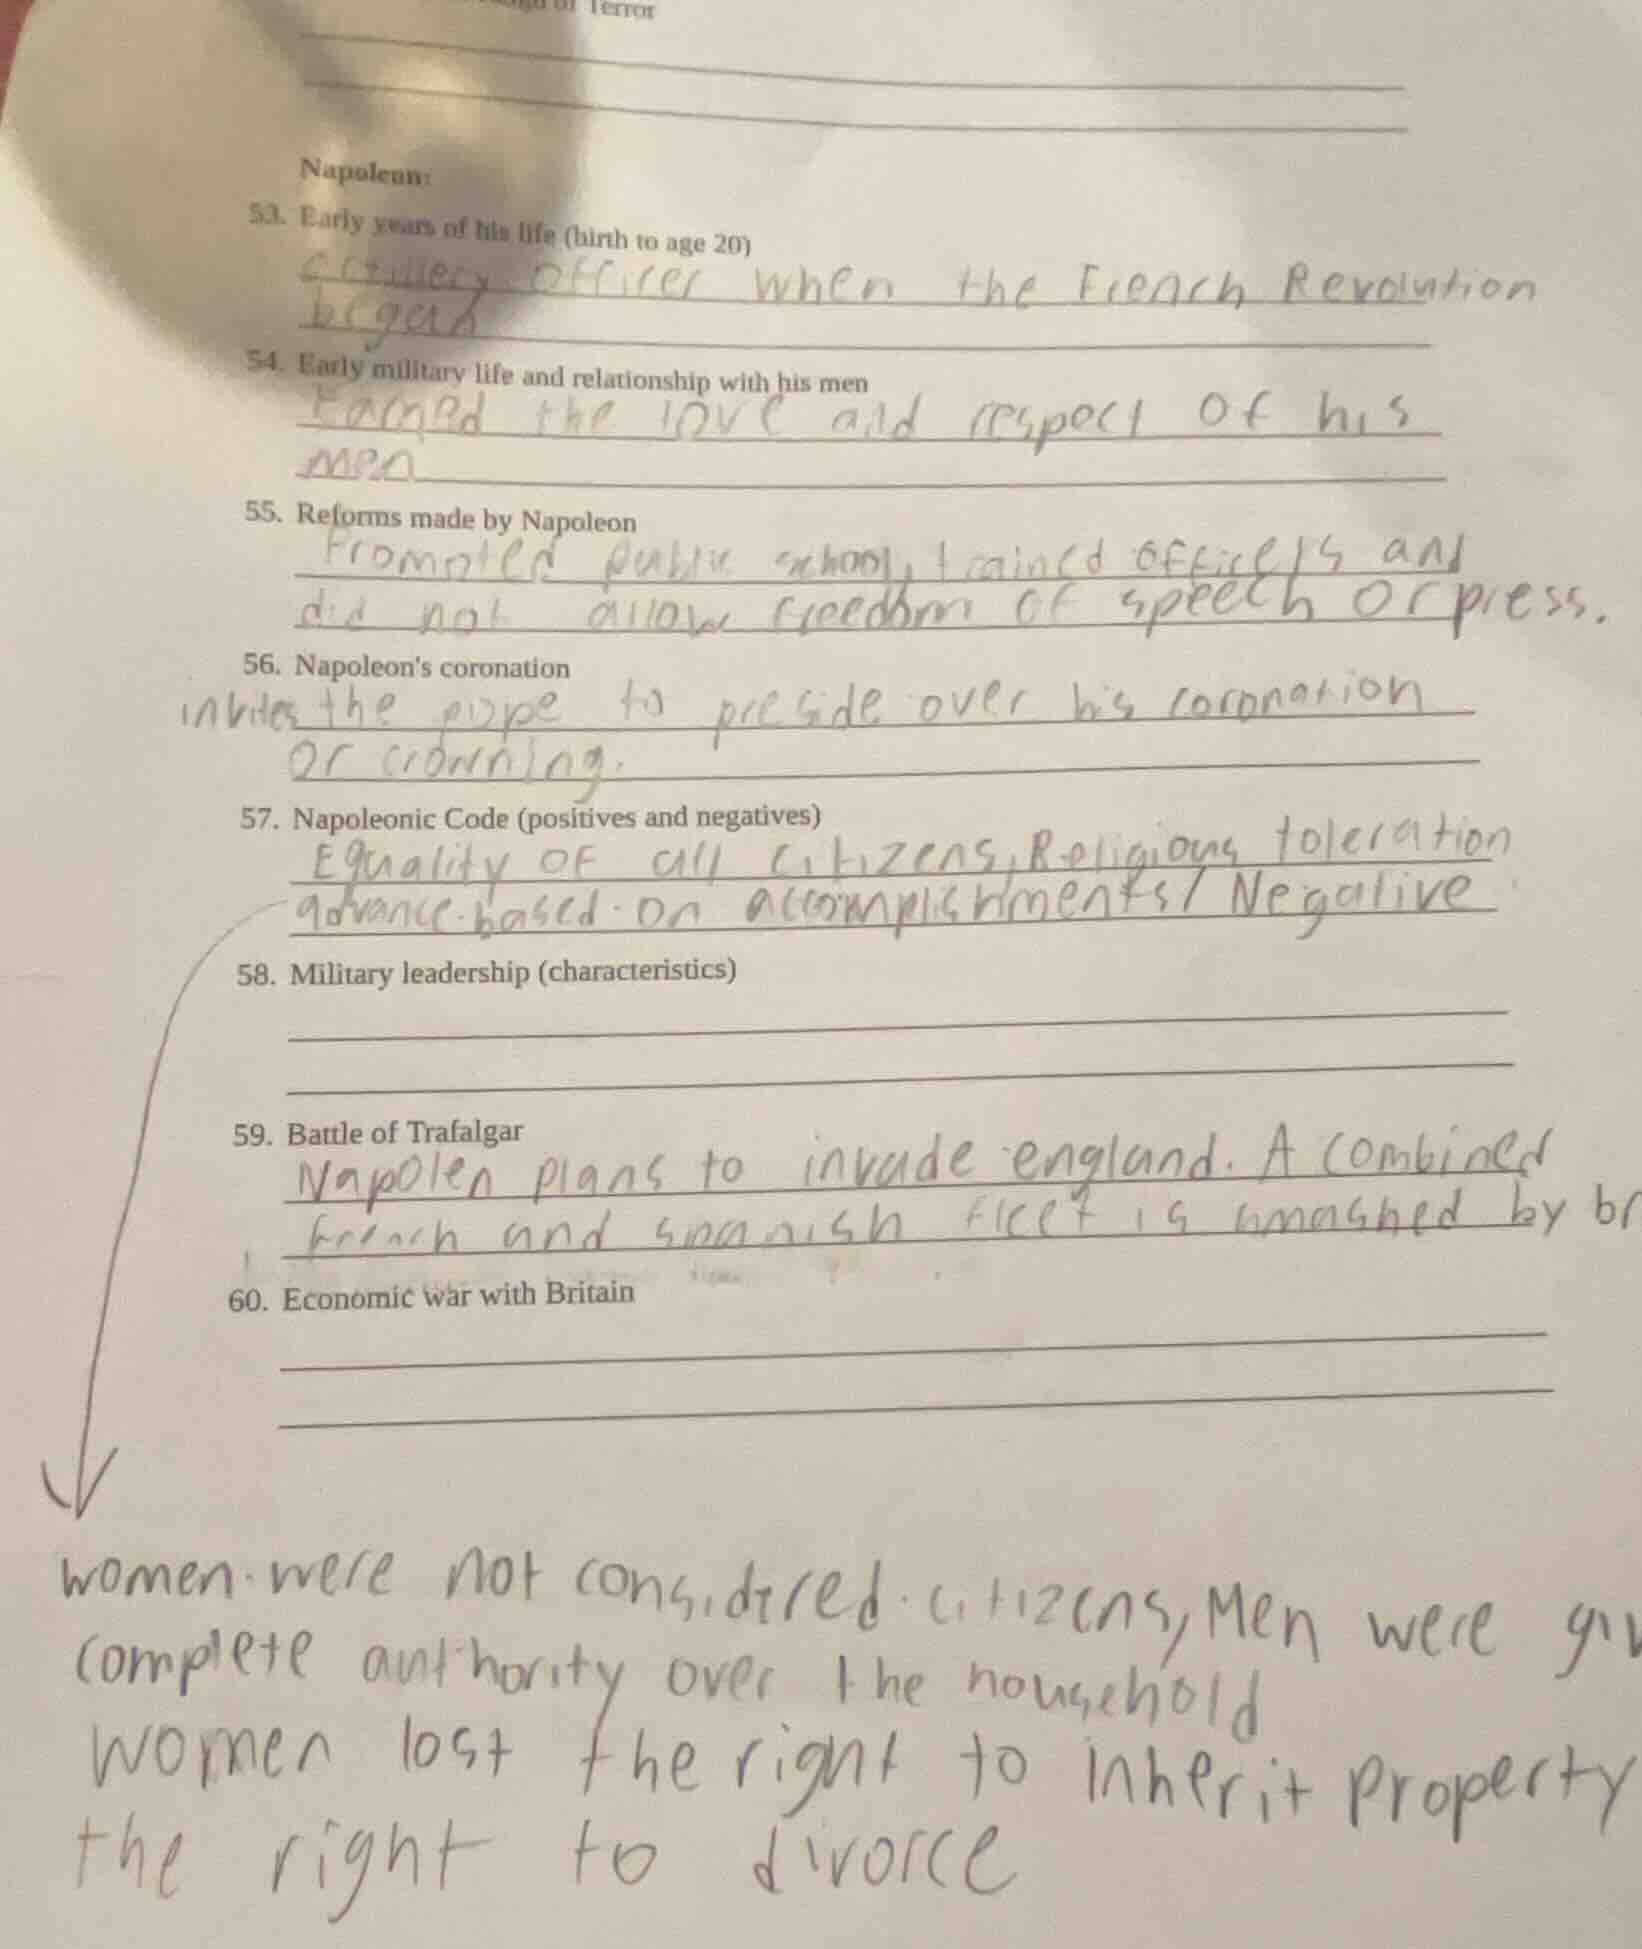 of Terror
Napoleon:
53. Early years of his life (birth to age 20)
artillery officer when the French Revolution
began
54. Early military life and relationship with his men
Earned the love and respect of his
men
55. Reforms made by Napoleon
Promoted public school, trained officers and
did not allow freedom of speech or press.
56. Napoleon's coronation
invites the pope to preside over his coronation
or crowning.
57. Napoleonic Code (positives and negatives)
Equality of all citizens, Religious toleration
advance based on accomplishments/ Negative
58. Military leadership (characteristics)
59. Battle of Trafalgar
Napolen plans to invade england. A combined
french and spanish fleet is smashed by br
60. Economic war with Britain
women were not considered citizens, Men were giv
complete authority over the household
women lost the right to inherit property
the right to divorce